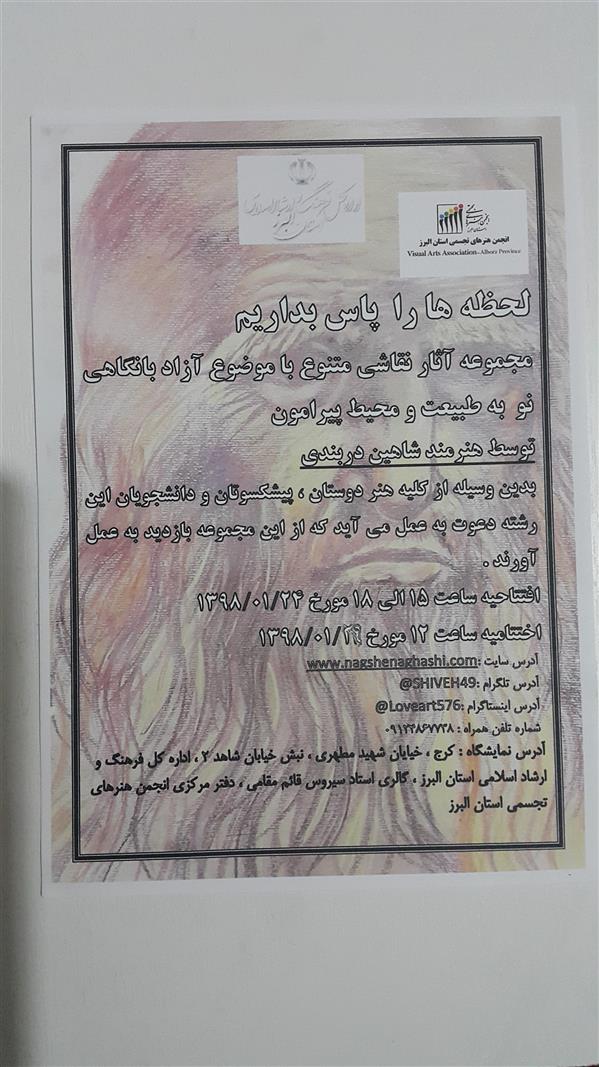 اداره کل فرهنگ و ارشاد اسلامی
استان البرز
انجمن هنرهای تجسمی استان البرز
Visual Arts Association-Alborz Province
لحظه ها را پاس بداریم
مجموعه آثار نقاشی متنوع با موضوع آزاد بانگاهی
نو به طبیعت و محیط پیرامون
توسط هنرمند شاهین دربندی
بدین وسیله از کلیه هنر دوستان ، پیشکسوتان و دانشجویان این
رشته دعوت به عمل می آید که از این مجموعه بازدید به عمل
آورند .
افتتاحیه ساعت ۱۵ الی ۱۸ مورخ ۱۳۹۸/۰۱/۲۴
اختتامیه ساعت ۱۲ مورخ ۱۳۹۸/۰۱/۲۹
آدرس سایت :www.nagshenaghashi.com
آدرس تلگرام :@SHIVEH49
آدرس اینستاگرام :@Loveart576
شماره تلفن همراه : ۰۹۱۲۳۸۶۷۷۳۸
آدرس نمایشگاه : کرج ، خیابان شهید مطهری ، نبش خیابان شاهد ۲ ، اداره کل فرهنگ و
ارشاد اسلامی استان البرز ، گالری استاد سیروس قائم مقامی ، دفتر مرکزی انجمن هنرهای
تجسمی استان البرز